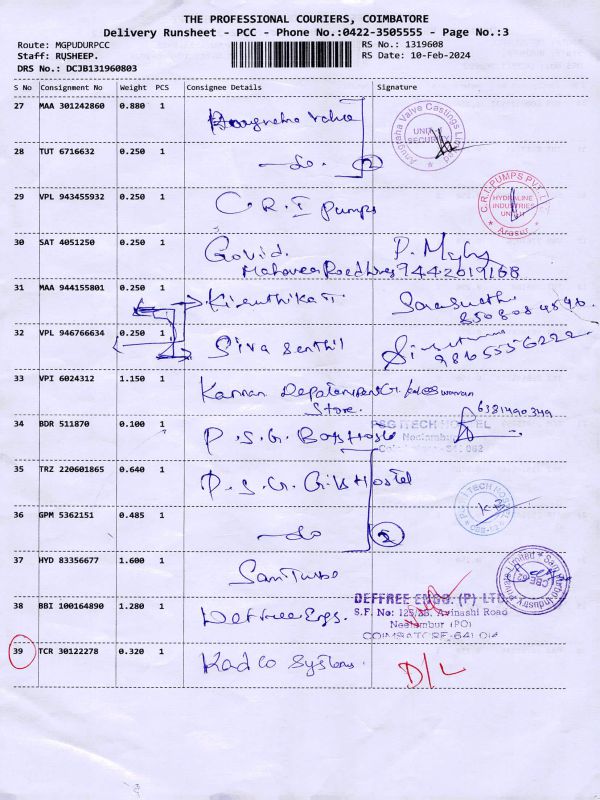 THE PROFESSIONAL COURIERS, COIMBATORE
Delivery Runsheet - PCC - Phone No.:0422-3505555 - Page No.:3
Route: MGPUDURPCC RS No.: 1319608
Staff: RUSHEEP. RS Date: 10-Feb-2024
DRS No.: DCJB131960803
S No Consignment No Weight PCS Consignee Details Signature
27 MAA 301242860 0.880 1 Anugraha Valve Castings Limited
UNIT
SECURITY
28 TUT 6716632 0.250 1 -do- 2
29 VPL 943455932 0.250 1 C.R.I Pumps C.R.I. PUMPS PVT. L
HYDRALINE
INDUSTRIES
UNIT
Arasur
30 SAT 4051250 0.250 1 Govid. P.
9442019168
31 MAA 944155801 0.250 1 Kiruthika
32 VPL 946766634 0.250 1 Siva Senthil
9865556222
33 VPI 6024312 1.150 1 Kannan
Store. 6381490349
34 BDR 511870 0.100 1 P.S.G. Boys Hostel PSG iTECH HOSTEL
Neelambur
35 TRZ 220601865 0.640 1 P.S.G. Girls Hostel
36 GPM 5362151 0.485 1 -do- 2
37 HYD 83356677 1.600 1 Sam Turbo
38 BBI 100164890 1.280 1 Deffree Engs. DEFFREE ENGG. (P) LTD.
S.F. No: 125/3B, Avinashi Road
Neelambur (PO)
COIMBATORE-641 014
39 TCR 30122278 0.320 1 Kadco Systems. D/L